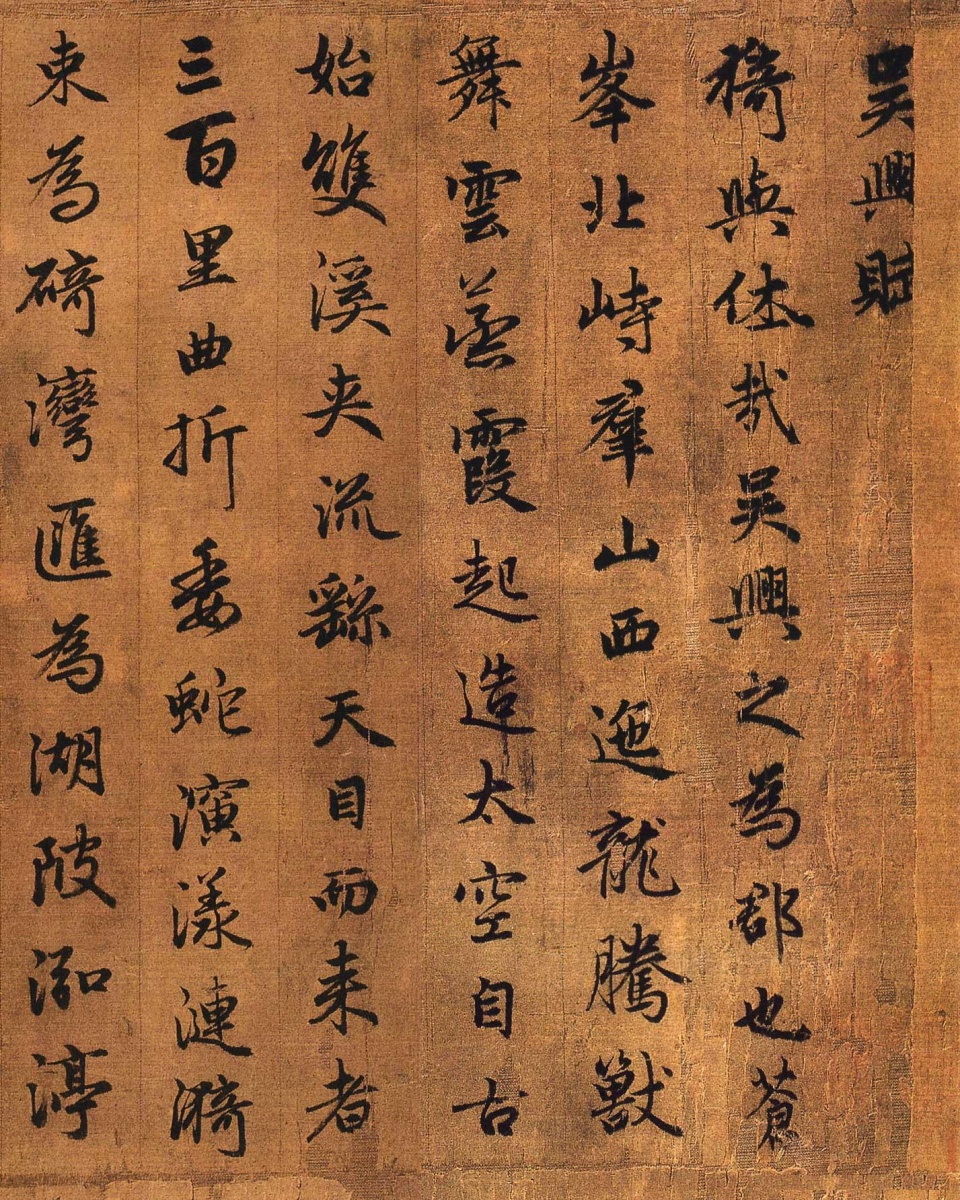 吳興賦
猗與休哉吳興之為郡也蒼
峯北峙羣山西迤龍騰獸
舞雲蒸霞起造太空自古
始雙溪夾流繇天目而来者
三百里曲折委蛇演漾漣漪
束為碕灣匯為湖陂泓渟